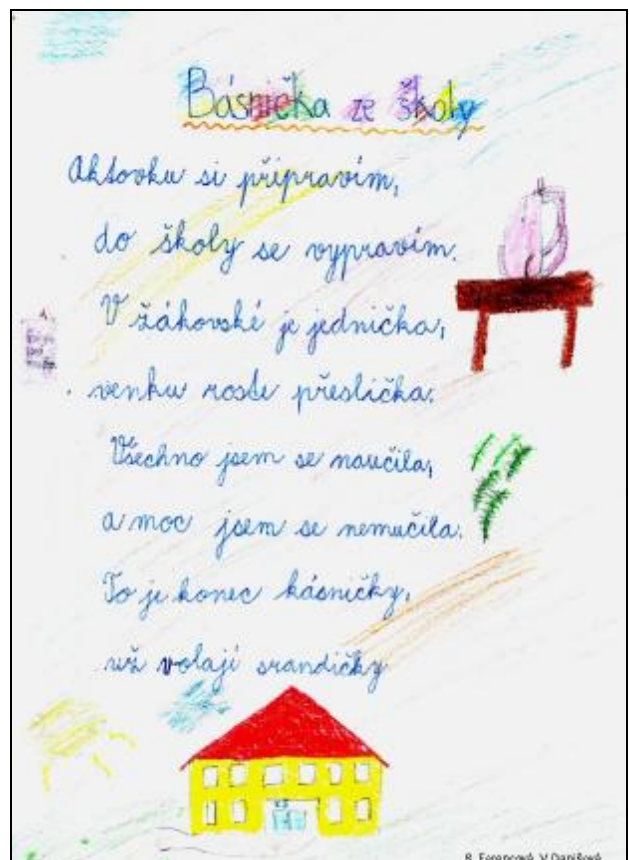 Básnička ze školy
Aktovku si připravím,
do školy se vypravím.
V žákovské je jednička,
venku roste přeslička.
Všechno jsem se naučila,
a moc jsem se nemučila.
To je konec básničky,
už volají srandičky